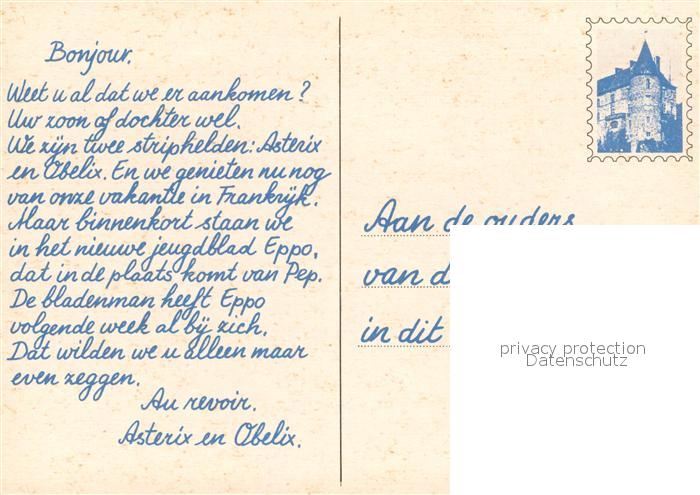 Bonjour.
Weet u al dat we er aankomen?
Uw zoon of dochter wel.
We zijn twee striphelden: Asterix
en Obelix. En we genieten nu nog
van onze vakantie in Frankrijk.
Maar binnenkort staan we
in het nieuwe jeugdblad Eppo,
dat in de plaats komt van Pep.
De bladenman heeft Eppo
volgende week al bij zich.
Dat wilden we u alleen maar
even zeggen.
Au revoir.
Asterix en Obelix.
Aan de ouders
van d
in dit
privacy protection
Datenschutz